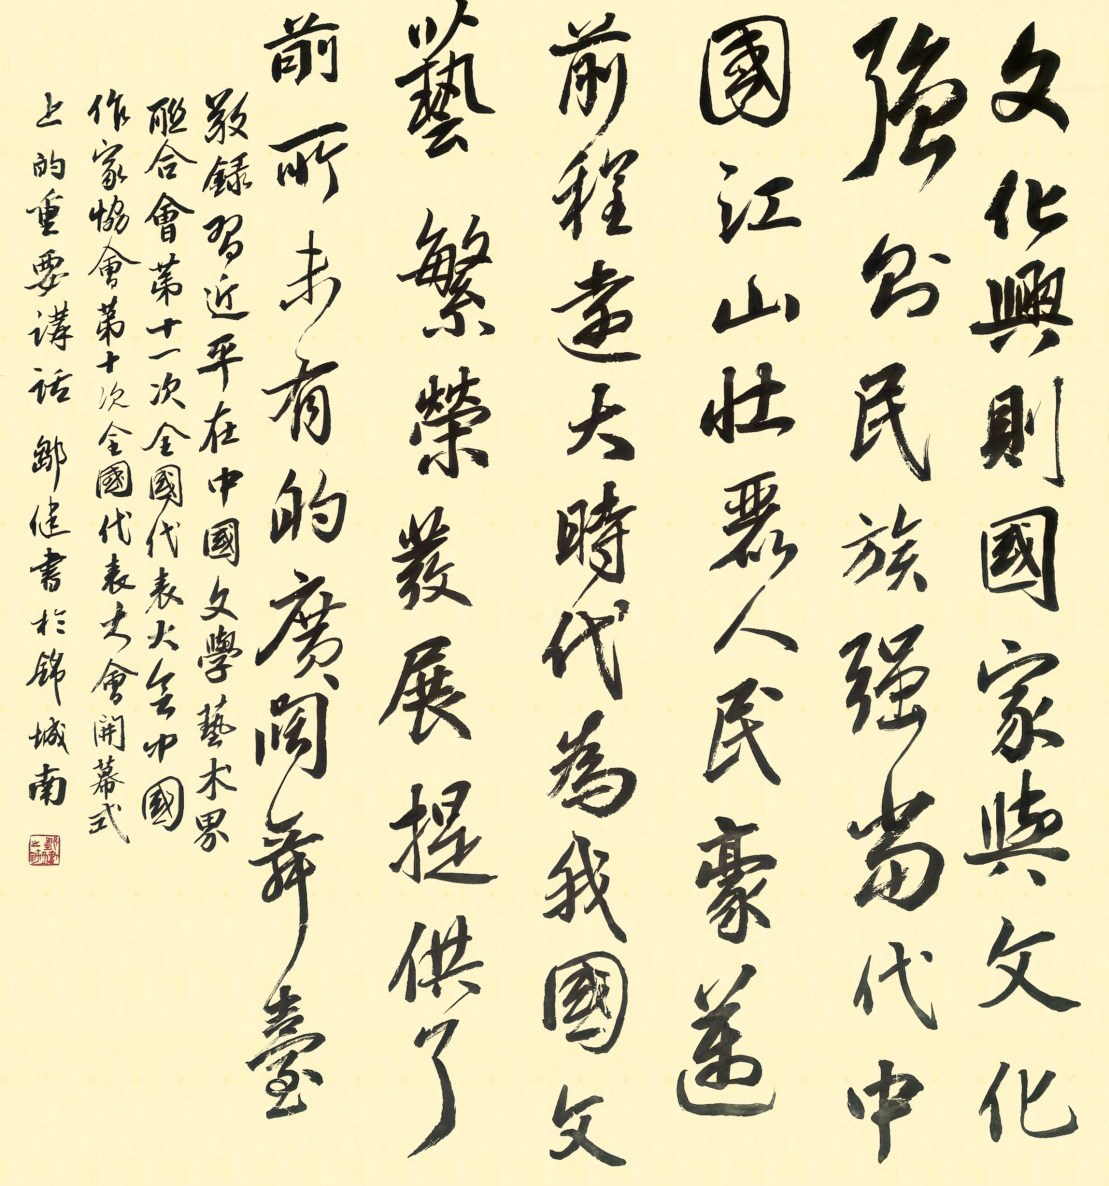 文化興則國家興文化
強則民族强當代中
國江山壯麗人民豪邁
前程遠大時代為我國文
藝繁榮發展提供了
前所未有的廣闊舞臺
敬録習近平在中國文學藝术界
聯合會第十一次全國代表大会中國
作家協會第十次全國代表大會開幕式
上的重要講話 鄒健書於錦城南
鄒健之印